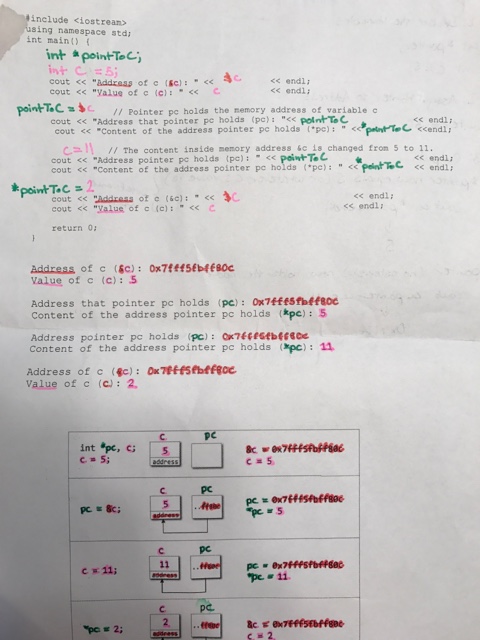 #include <iostream>
using namespace std;
int main() {
int *pointToC;
int c = 5;
cout << "Address of c (&c): " << &c << endl;
cout << "Value of c (c): " << c << endl;
pointToC = &c // Pointer pc holds the memory address of variable c
cout << "Address that pointer pc holds (pc): "<< pointToC << endl;
cout << "Content of the address pointer pc holds (*pc): " << *pointToC <<endl;
c=11 // The content inside memory address &c is changed from 5 to 11.
cout << "Address pointer pc holds (pc): " << pointToC << endl;
cout << "Content of the address pointer pc holds (*pc): " << *pointToC << endl;
*pointToC = 2
cout << "Address of c (&c): " << &c << endl;
cout << "Value of c (c): " << c << endl;
return 0;
}
Address of c (&c): 0x7fff5fbff80c
Value of c (c): 5
Address that pointer pc holds (pc): 0x7fff5fbff80c
Content of the address pointer pc holds (*pc): 5
Address pointer pc holds (pc): 0x7fff5fbff80c
Content of the address pointer pc holds (*pc): 11
Address of c (&c): 0x7fff5fbff80c
Value of c (c): 2
c pc
int *pc, c; 5 &c = 0x7fff5fbff80c
c = 5; address c = 5
c pc
pc = &c; 5 pc = 0x7fff5fbff80c
address *pc = 5
c pc
c = 11; 11 pc = 0x7fff5fbff80c
address *pc = 11
c pc
*pc = 2; 2 &c = 0x7fff5fbff80c
address c = 2